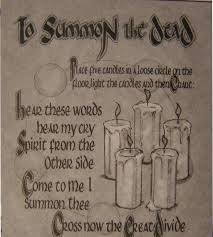 To Summon the dead
Place five candles in a loose circle on the
floor, light the candles and then Chant:
Hear these words
hear my cry
Spirit from the
Other Side
Come to me I
Summon thee
Cross now the Great divide